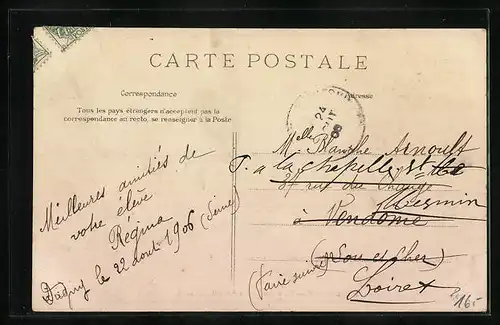 CARTE POSTALE
Correspondance
Adresse
Tous les pays étrangers n'acceptent pas la
correspondance au recto, se renseigner à la Poste
24
06
Meilleures amitiés de
votre élève
Régina
Dugny le 22 août 1906 (Seine)
Melle Blanche Arnoult
à la Chapelle St
37 rue du Change
Mesmin
à Vendôme
(Loir et Cher)
(Faire suivre)
Loiret
16.-